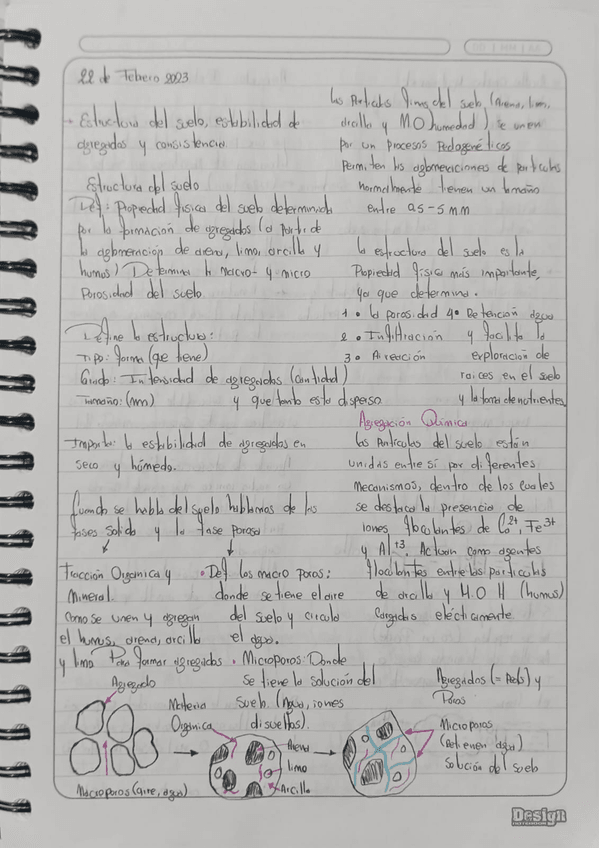 22 de Febrero 2023
→ Estructura del suelo, estabilidad de
agregados y consistencia.
Estructura del suelo
Def: Propiedad física del suelo determinada
por la formación de agregados (a partir de
la aglomeración de arena, limo, arcilla y
humus) Determina la macro- y micro
Porosidad del suelo.
Define la estructura:
Tipo: forma (que tiene)
Grado: Intensidad de agregados (cantidad)
Tamaño: (mm) y que tanto esta disperso
Importa: la estabilidad de agregados en
seco y húmedo.
Cuando se habla del suelo hablamos de las
fases solida y la fase porosa
Fracción Organica y
Mineral.
Como se unen y agregan
el humus, arena, arcilla
y limo Para formar agregados
• Def. los macro poros:
donde se tiene el aire
del suelo y circula
el agua.
• Microporos: Donde
se tiene la solución del
suelo. (Agua, iones
disueltos).
Las Articulas finas del suelo, (Arena, limo,
arcilla y M.O humedad) se unen
por un procesos Pedogenéticos
Permiten las aglomeraciones de particulas
normalmente tienen un tamaño
entre 0.5 - 5 mm
La estructura del suelo es la
Propiedad física más importante,
ya que determina.
1 • la porosidad 4• Detención agua
2 • Infiltración y facilita la
3 • Aireación exploración de
raices en el suelo
y la toma de nutrientes
Agregación Química
Las Articulas del suelo están
unidas entre sí por diferentes
mecanismos, dentro de los cuales
se destaca la presencia de
iones floculantes de Ca²⁺, Fe³⁺
y Al⁺³. Actuan como agentes
floculantes entre las particulas
de arcilla y M.O H (humus)
cargadas eléctricamente
Agregados (= Peds) y
Poros
Agregado
Macroporos (aire, agua)
Materia
Organica
Arena
Limo
Arcilla
Microporos
(Retienen agua)
Solución del suelo
Design